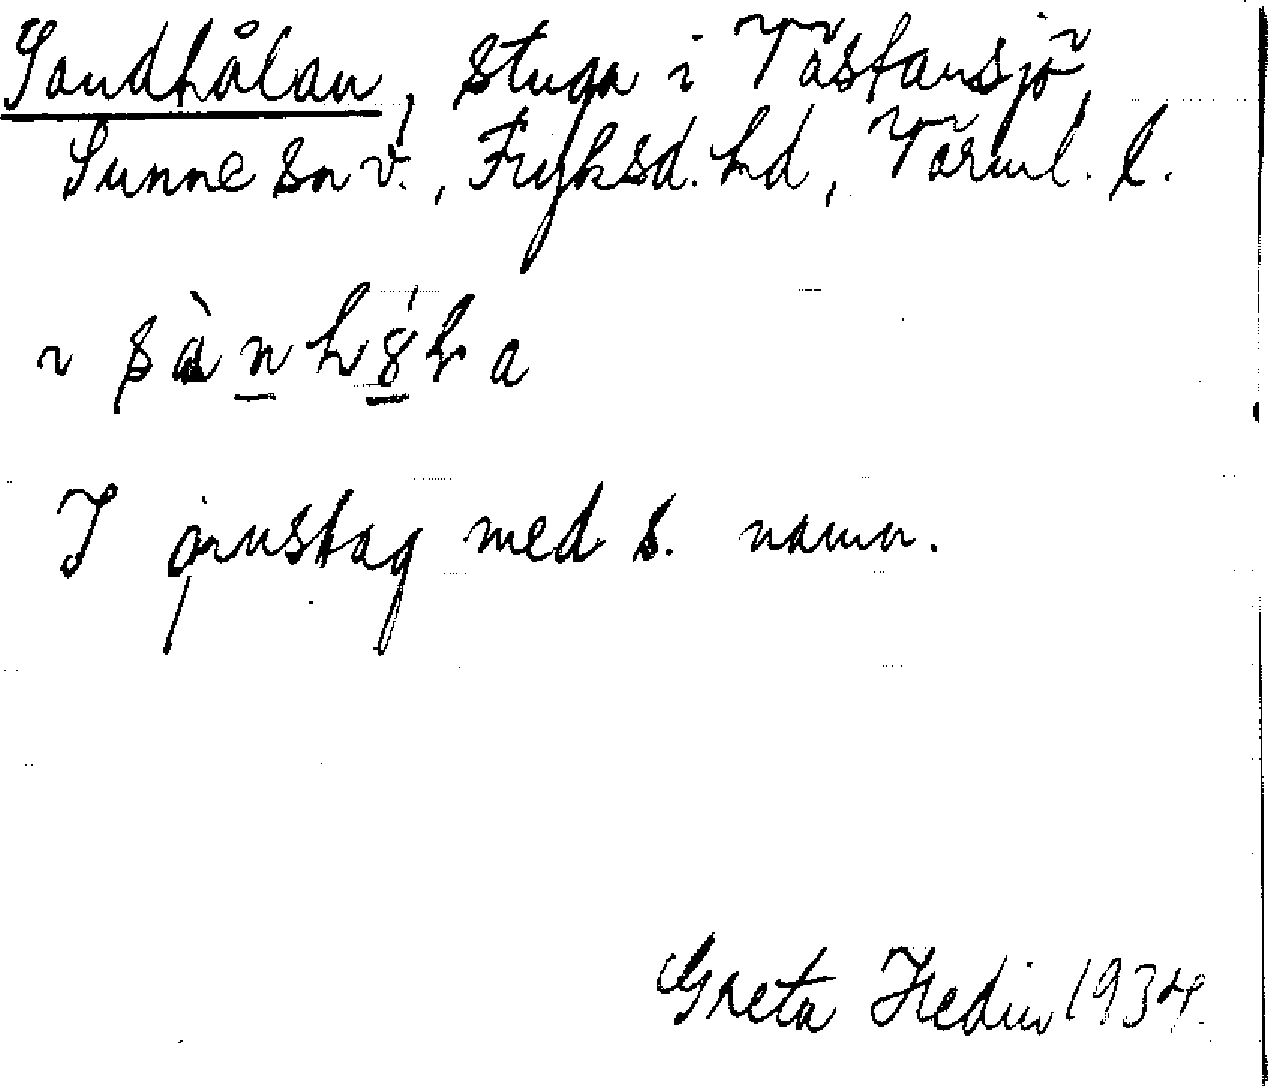 Sandhålan, stuga i Västansjö
Sunne sn v., Fryksd. hd, Värml. l.
I ljustag med s. namn.
Greta Hedin 1934.